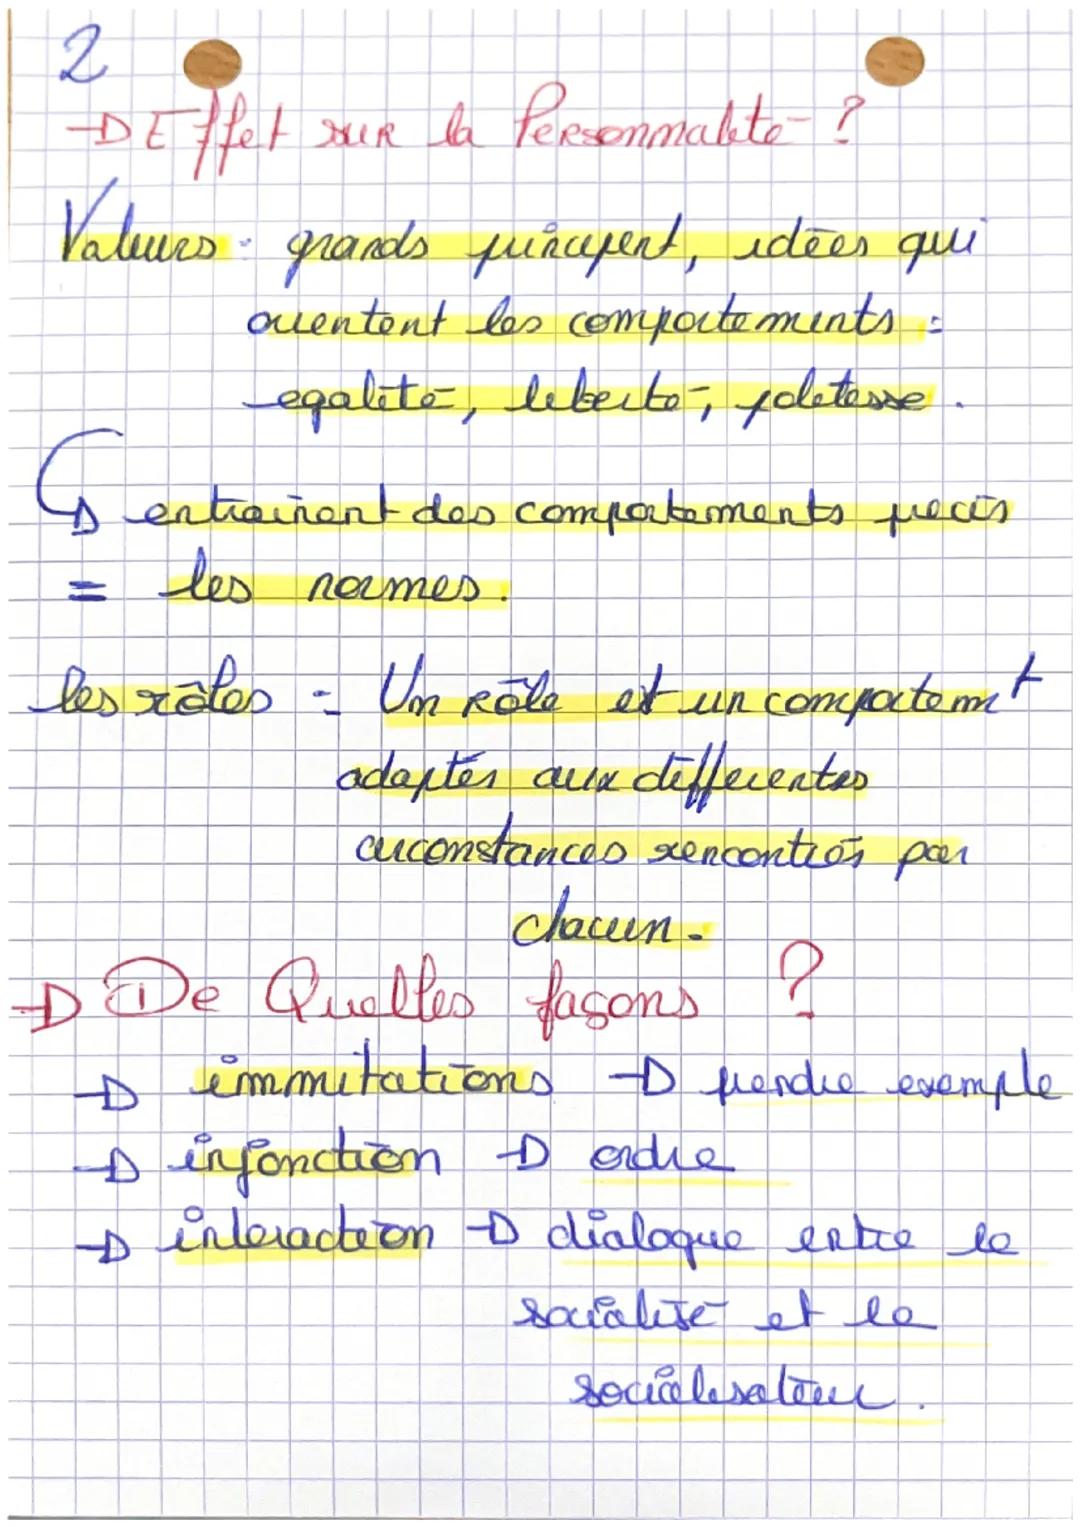 2
→ Effet sur la Personnalité ?
Valeurs : grands principent, idées qui
orientent les comportements :
egalité, liberté, politesse.
→ entraînent des comportements précis
= les normes.
les rôles : Un rôle et un comportemt
adaptés aux différentes
circonstances rencontrés par
chacun.
→ De Quelles façons ?
→ immitations → prendre exemple
→ injonction → ordre
→ interaction → dialogue entre le
socialisé et le
socialisateur.